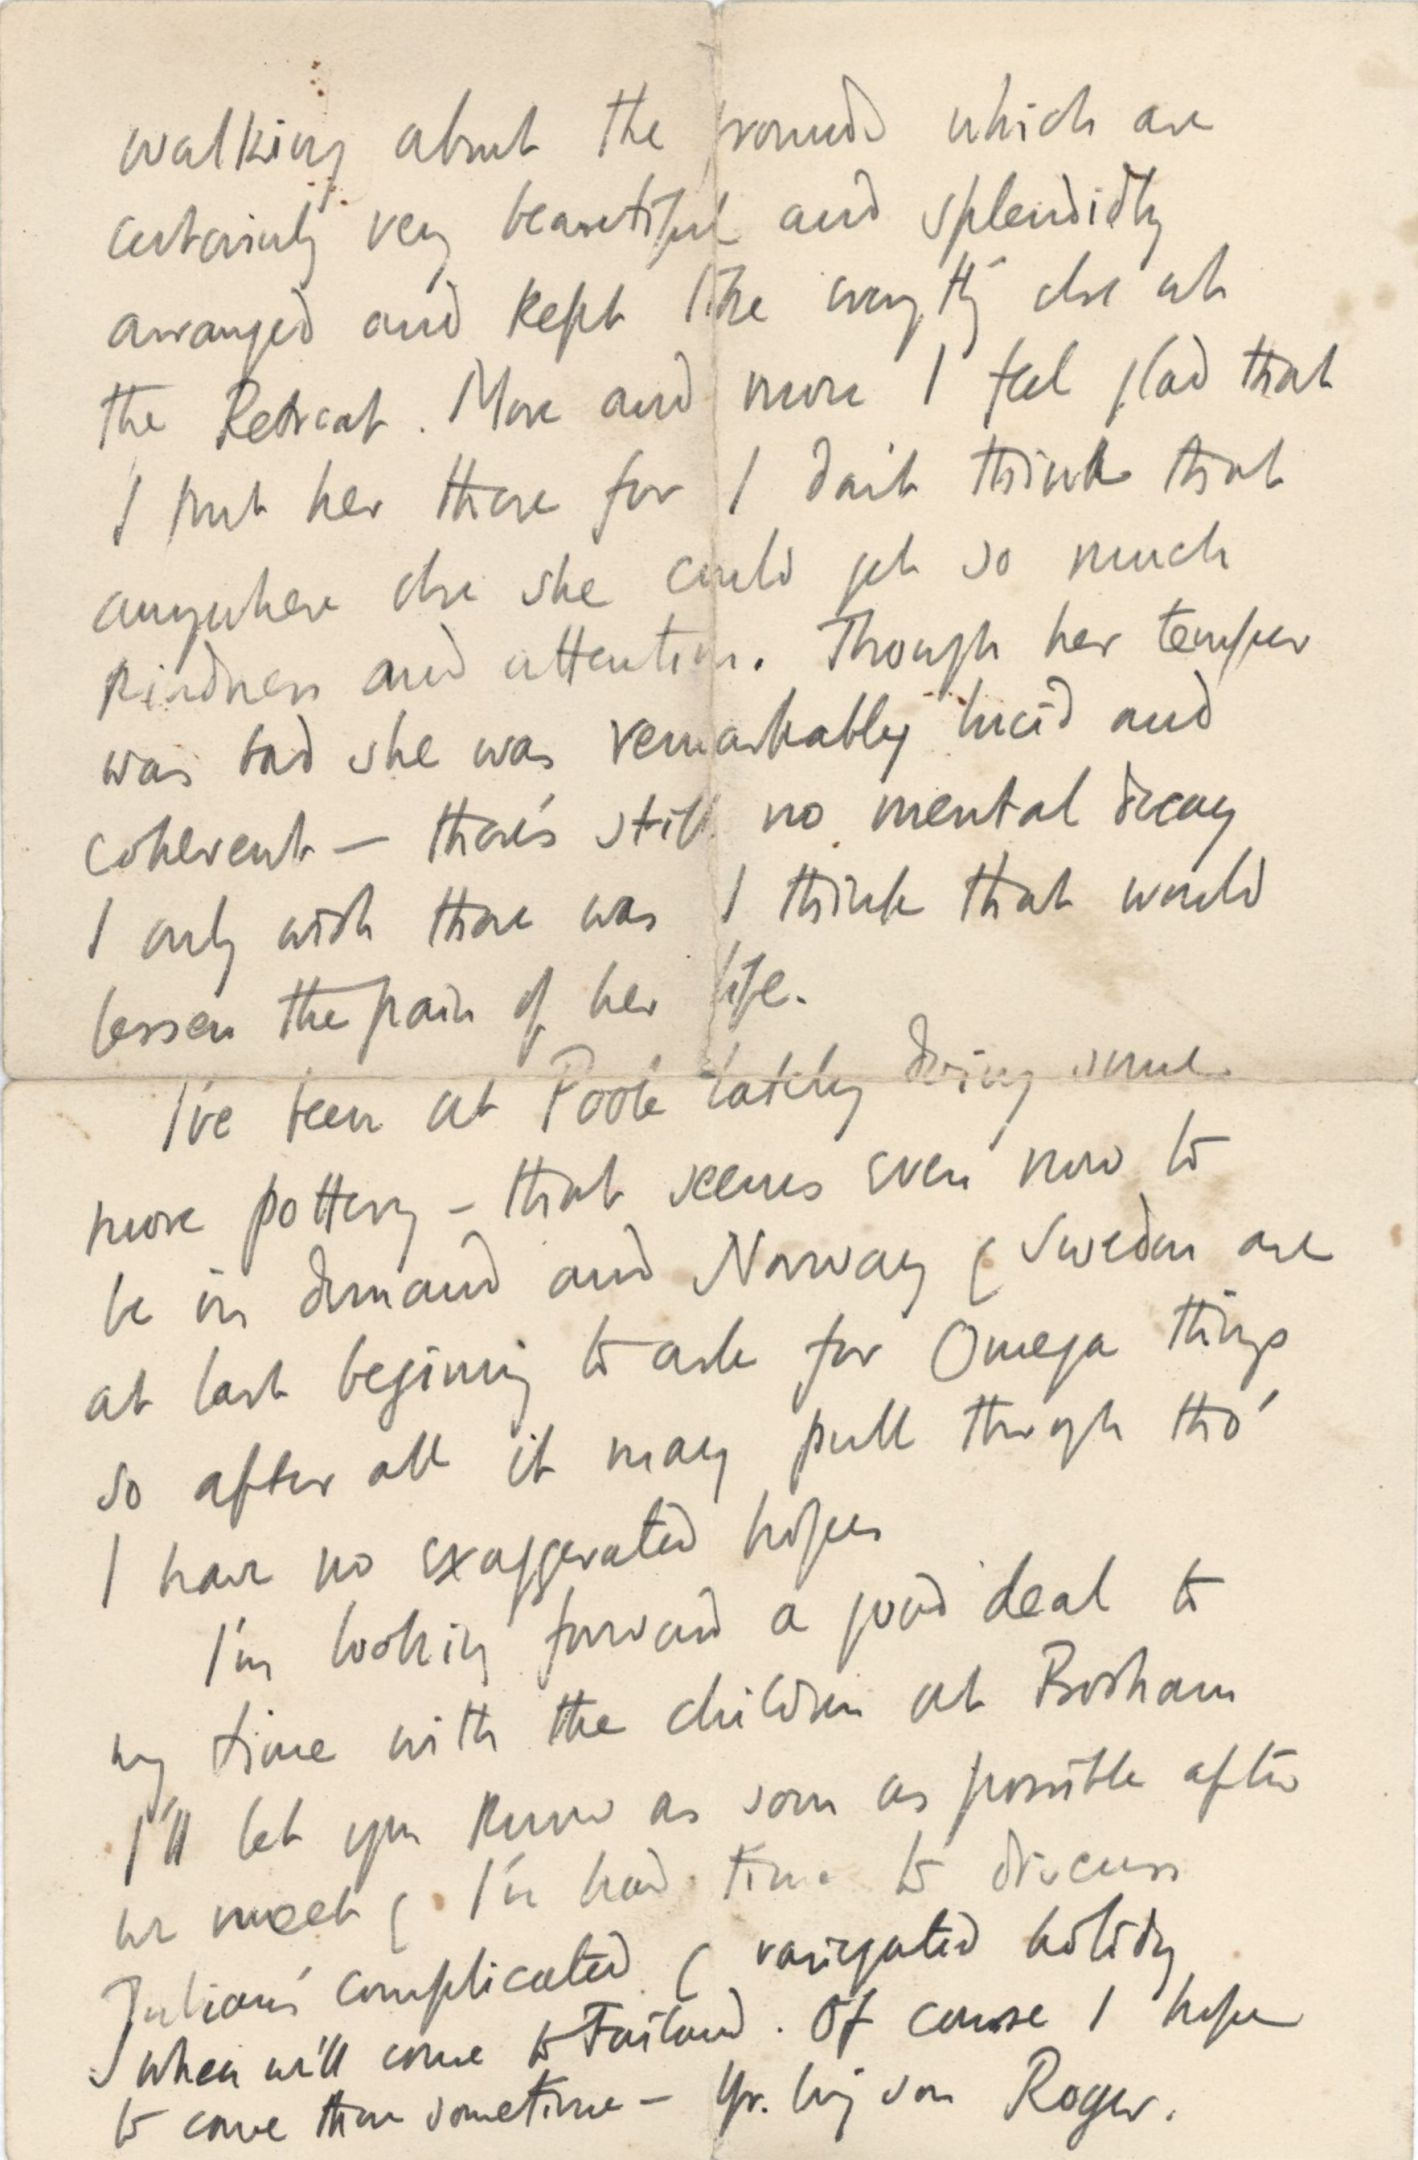 walking about the grounds which are
certainly very beautiful and splendidly
arranged and kept like everyth̄g else at
the Retreat. More and more I feel glad that
I put her there for I don't think that
anywhere else she could get so much
kindness and attention. Though her temper
was bad she was remarkably lucid and
coherent — there's still no mental decay
I only wish there was I think that would
lessen the pain of her life.
I've been at Poole lately doing some
more pottery – that seems even now to
be in demand and Norway & Sweden are
at last begining to ask for Omega things
so after all it may pull through tho'
I have no exaggerated hopes
I'm looking forward a good deal to
my time with the children at Bosham
I'll let you know as soon as possible after
we meet & I've had time to discuss
Julian's complicated & variegated holiday
when we'll come to Failand. Of course I hope
to come there sometime – Yr. lvg son Roger.